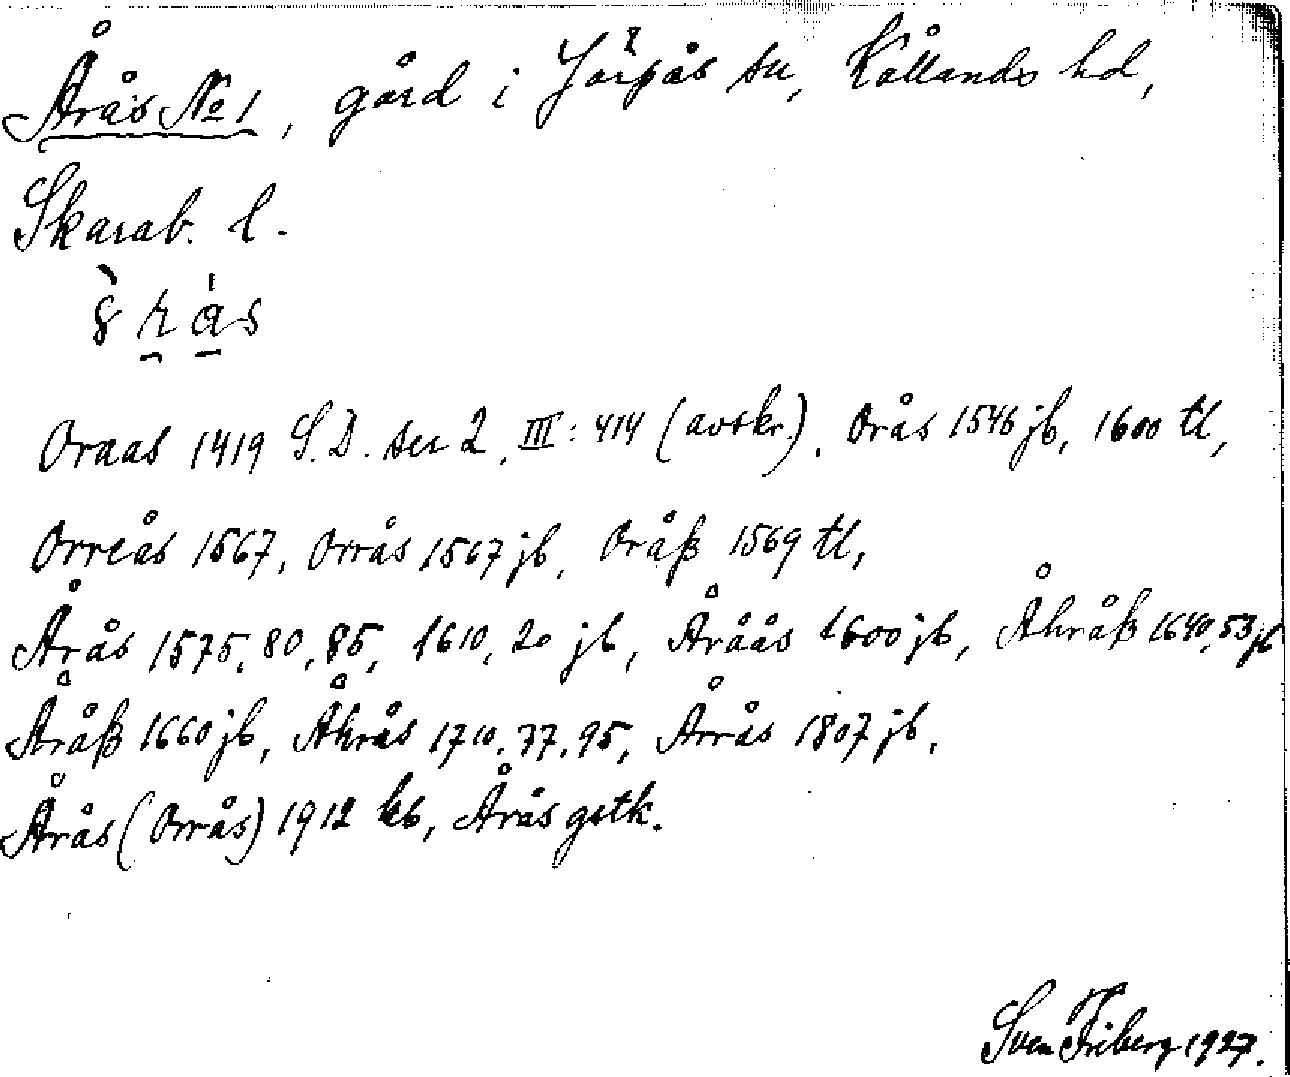 Årås № 1, gård i Järpås sn, Kållands hd,
Skarab. l.
Oraas 1419 S.D. ser 2, III: 414 (avskr.). Orås 1546 jb, 1600 tl,
Orreås 1567, Orrås 1567 jb, Oråß 1569 tl,
Årås 1575, 80, 85, 1610, 20 jb, Åråås 1600 jb, Åhråß 1640, 53 jb
Åråß 1660 jb, Åhrås 1710, 77, 95, Årrås 1807 jb,
Årås (Orrås) 1912 kb, Årås gstk.
Sven Friberg 1927.